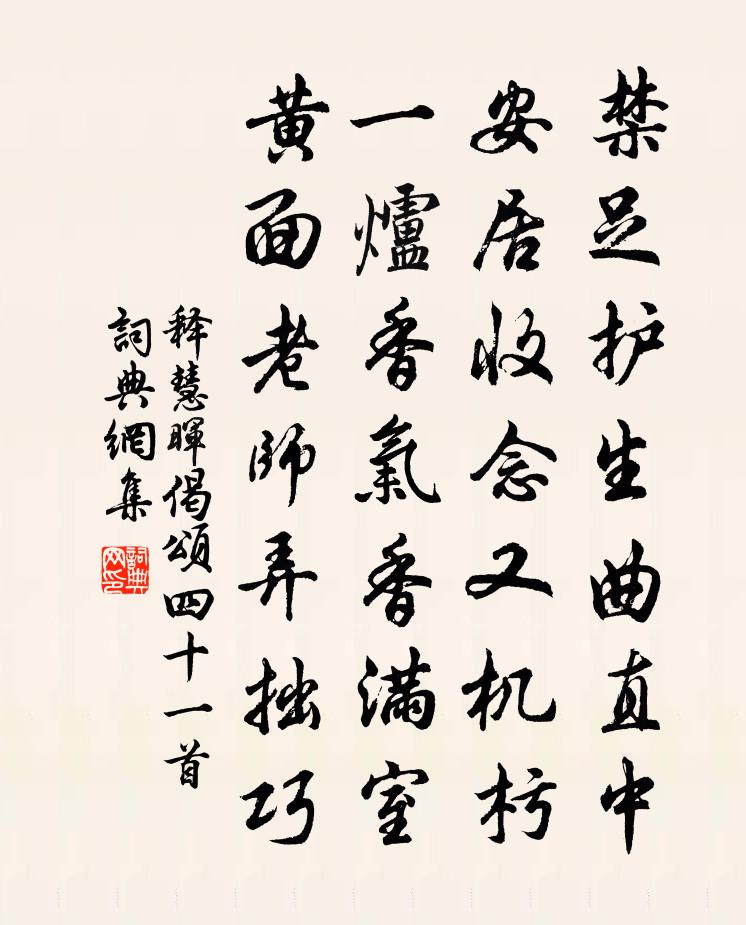 禁足护生曲直中
安居收念又机杇
一爐香氣香满室
黄面老師弄拙巧
释慧暉偈頌四十一首
詞典網集
詞典网印